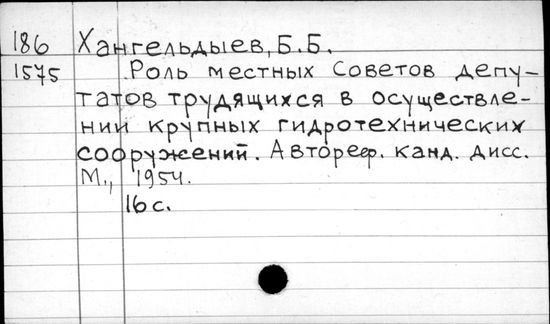 186 Хангельдыев, Б.Б.
1575 Роль местных Советов депу-
татов трудящихся в осуществле-
нии крупных гидротехнических
сооружений. Автореф. канд. дисс.
М., 1954.
16 с.